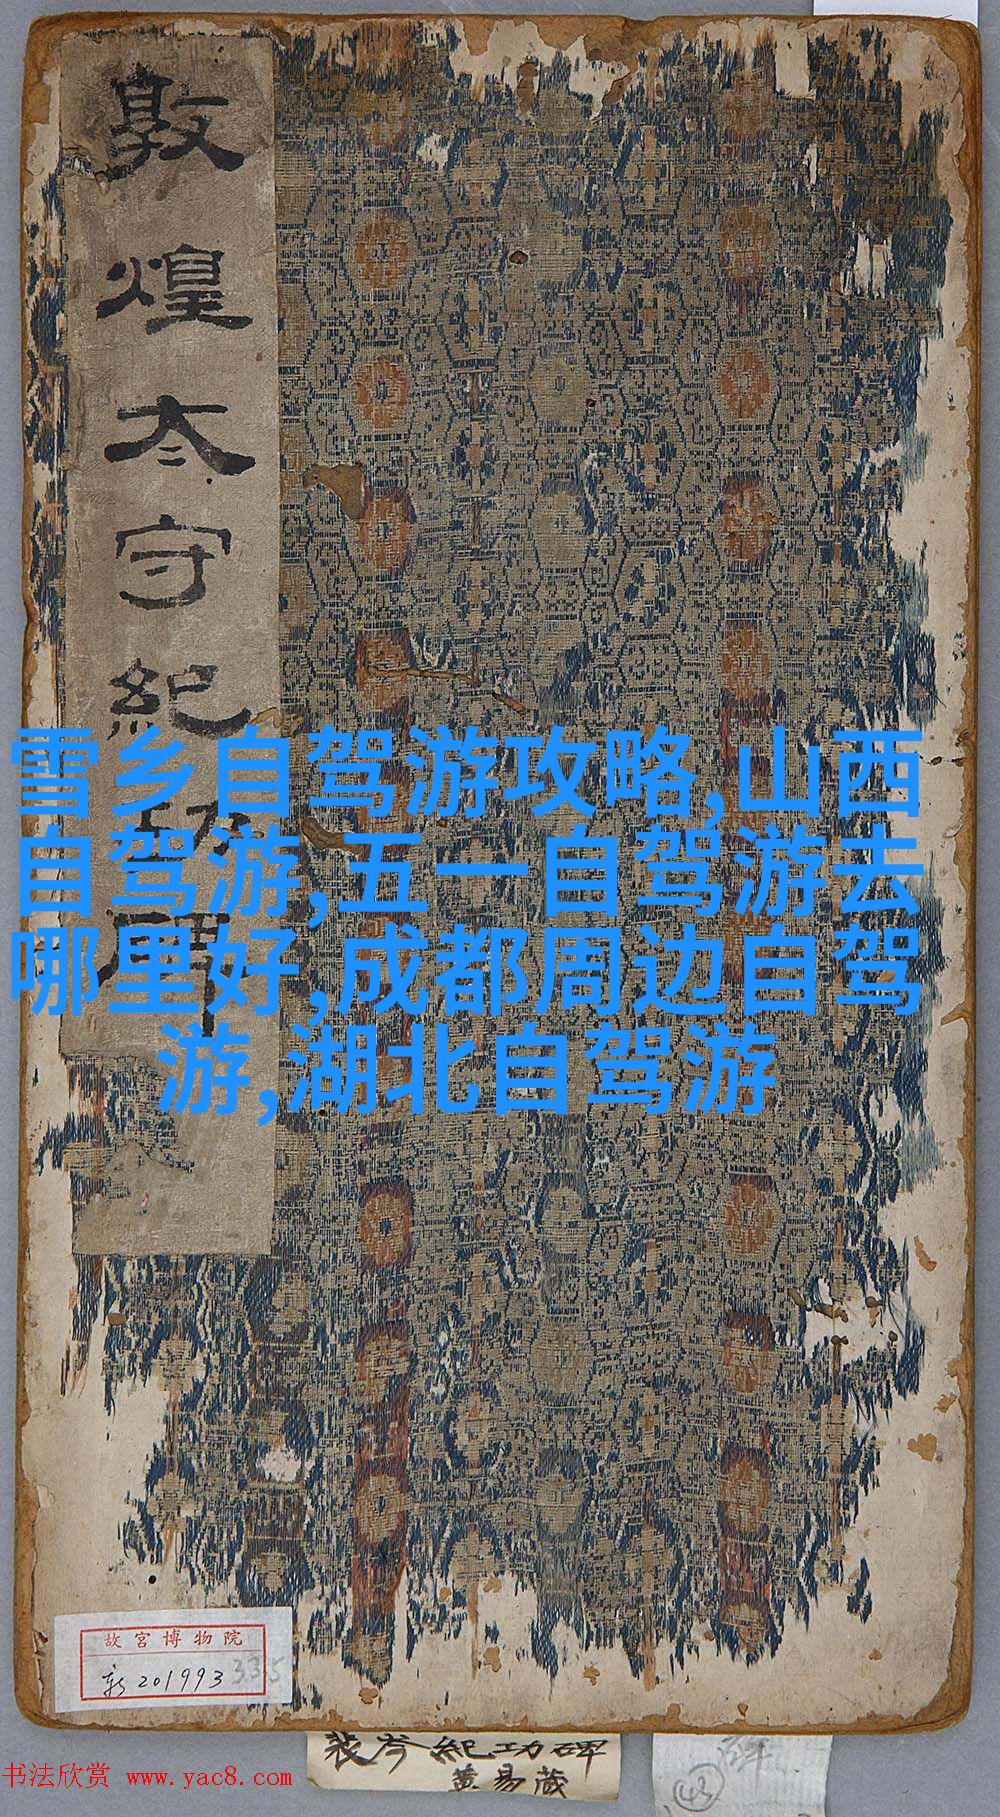 敦煌太守紀功碑
雪乡自驾游攻略,山西
自驾游,五一自驾游去
哪里好,成都周边自驾
游,湖北自驾游
故宫博物院
新201993
335
裴岑紀功碑
黄易藏
43
书法欣赏 www.yac8.com